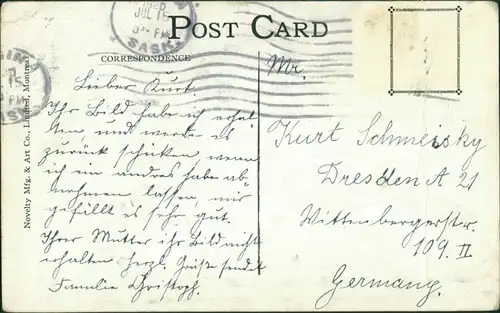 POST CARD
CORRESPONDENCE
JUL 15
PM
SASK
15
PM
Novelty Mfg. & Art Co., Limited, Montreal
Lieber Kurt.
Ihr Bild habe ich erhal
ten, und werde es
zurück schicken, wenn
ich ein andres habe ab
nehmen lassen, mir
gefällt es sehr gut.
Ihrer Mutter ihr Bild nicht
erhalten herzl. Grüße sendet
Familie Christoph.
Mr.
Kurt Schmeissky
Dresden A 21
Wittenbergerstr.
109. II
Germany.